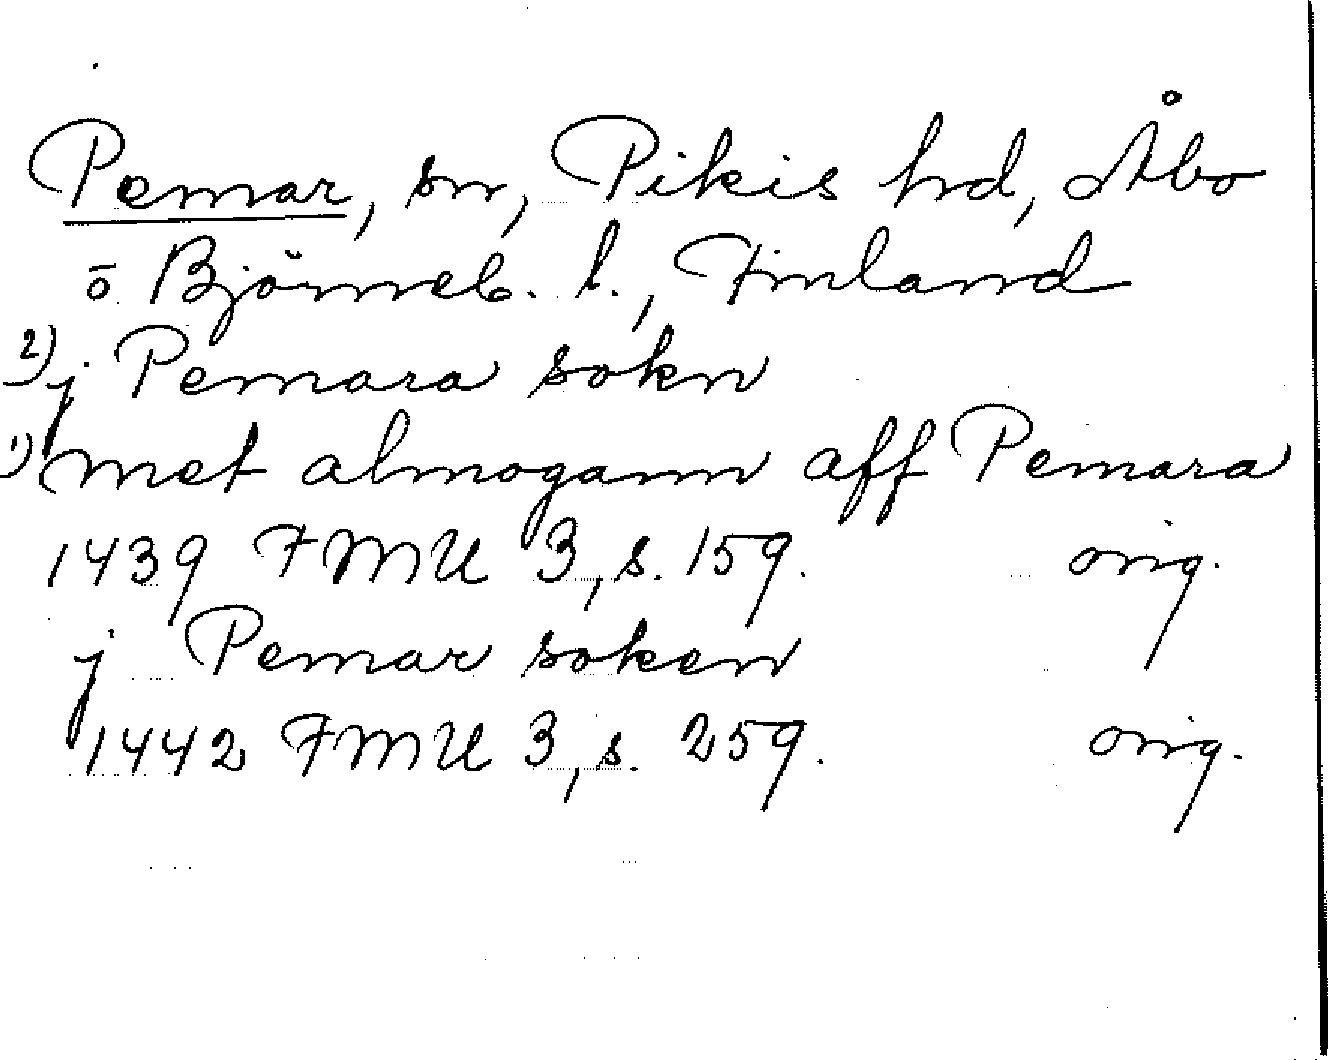 Pemar, sn, Pikis hd, Åbo
ō Björneb. l., Finland
2) j Pemara sokn
1) met almogann aff Pemara
1439 FMU 3, s. 159. orig.
j Pemar soken
1442 FMU 3, s. 259. orig.